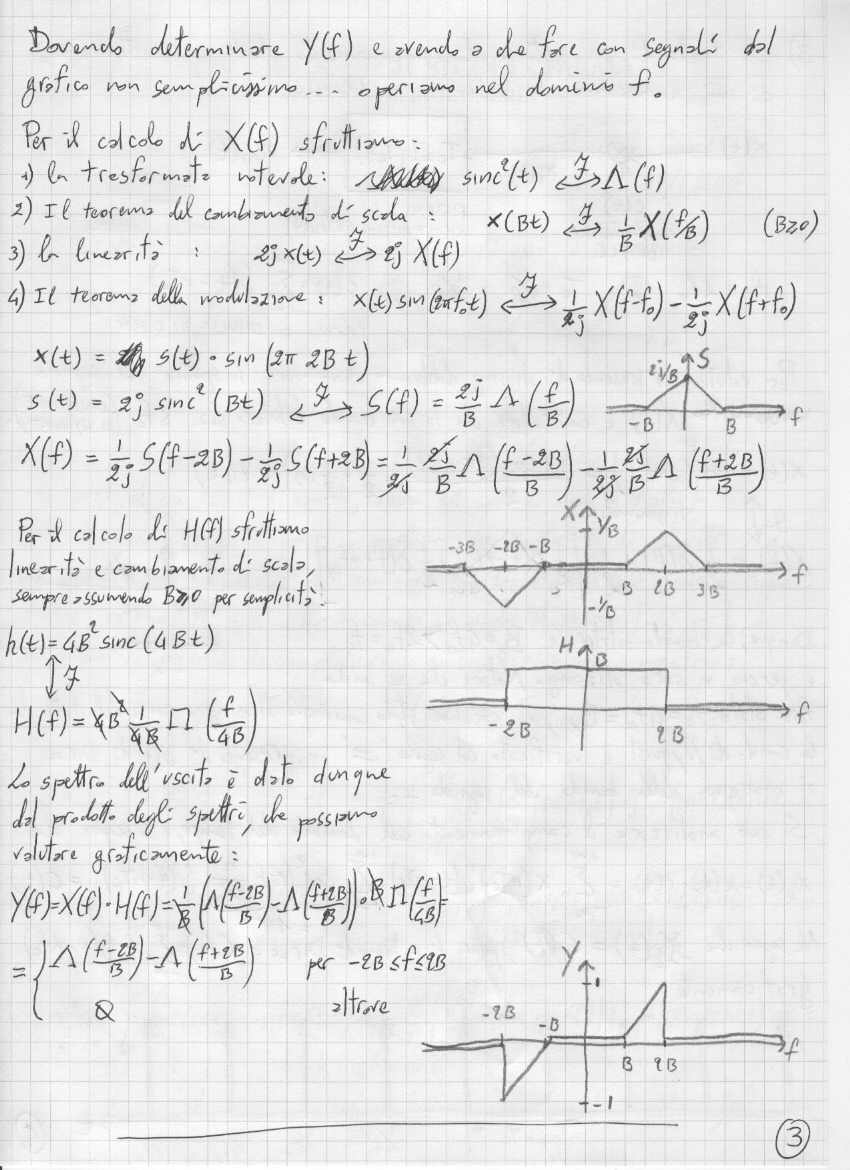 Dovendo determinare Y(f) e avendo a che fare con segnali dal
grafico non semplicissimo... operiamo nel dominio f.
Per il calcolo di X(f) sfruttiamo:
1) la trasformata notevole: sinc²(t) ⟷ℱ Λ(f)
2) Il teorema del cambiamento di scala : x(Bt) ⟷ℱ 1/B X(f/B) (B≥0)
3) la linearità : 2j x(t) ⟷ℱ 2j X(f)
4) Il teorema della modulazione : x(t) sin(2πf₀t) ⟷ℱ 1/2j X(f-f₀) - 1/2j X(f+f₀)
x(t) = s(t) · sin (2π 2B t)
s(t) = 2j sinc² (Bt) ⟷ℱ S(f) = 2j/B Λ (f/B)
2j/B S
-B B f
X(f) = 1/2j S(f-2B) - 1/2j S(f+2B) = 1/2j 2j/B Λ ((f-2B)/B) - 1/2j 2j/B Λ ((f+2B)/B)
Per il calcolo di H(f) sfruttiamo
linearità e cambiamento di scala,
sempre assumendo B≥0 per semplicità:
X 1/B
-3B -2B -B B 2B 3B f
-1/B
h(t) = 4B² sinc (4Bt)
↕ ℱ
H(f) = 4B² 1/4B Π (f/4B)
H B
-2B 2B f
Lo spettro dell'uscita è dato dunque
dal prodotto degli spettri, che possiamo
valutare graficamente :
Y(f) = X(f) · H(f) = 1/B (Λ((f-2B)/B) - Λ((f+2B)/B)) · B Π(f/4B) =
= { Λ ((f-2B)/B) - Λ ((f+2B)/B) per -2B ≤ f ≤ 2B
0 altrove
Y 1
-2B -B B 2B f
-1
3